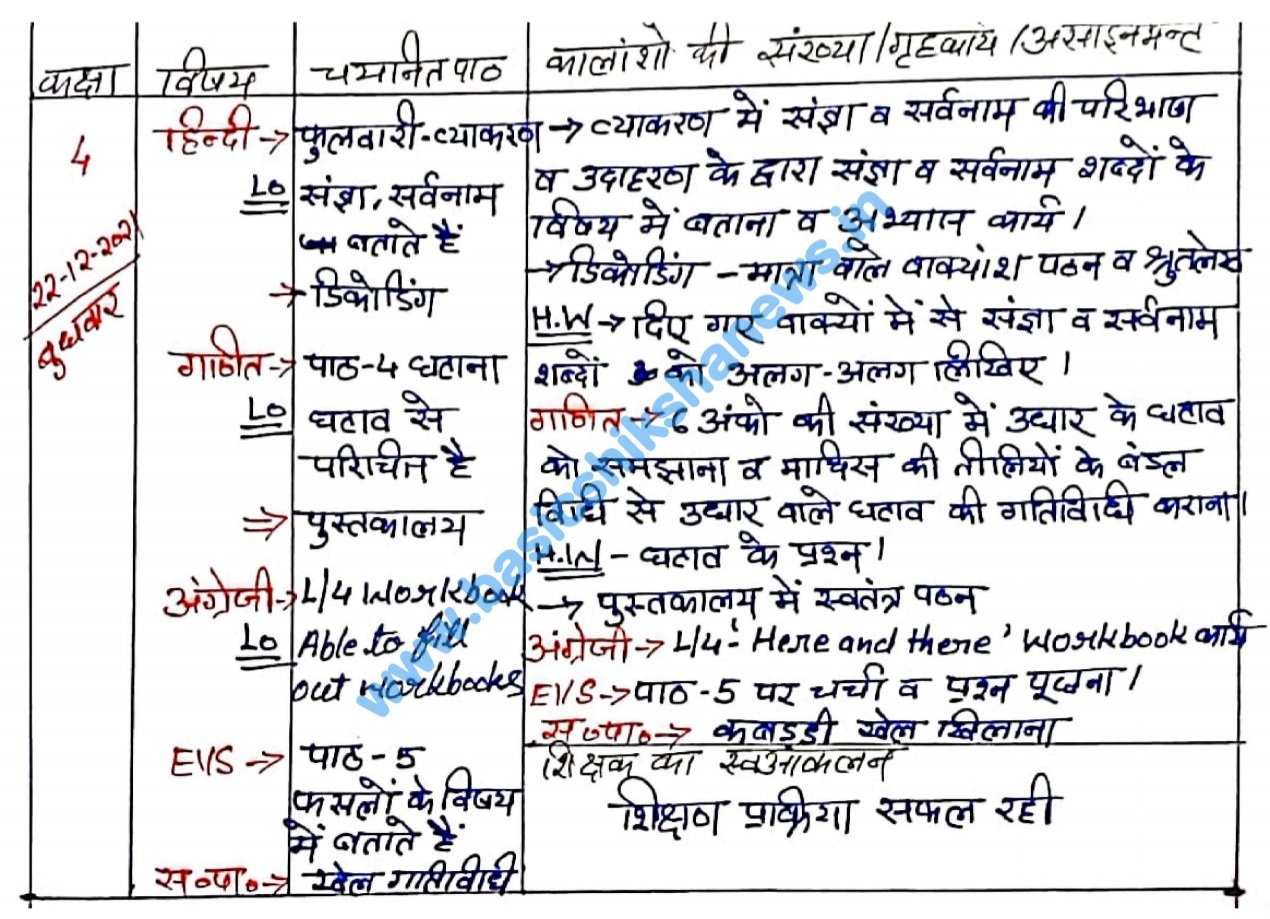 कक्षा
विषय
चयनित पाठ
कालांशो की संख्या/गृहकार्य/असाइनमेन्ट
4
22-12-2021
बुधवार
हिन्दी→ फुलवारी-व्याकरण
LO संज्ञा, सर्वनाम
बताते हैं
→ डिकोडिंग
गणित→ पाठ-4 घटाना
LO घटाव से
परिचित है
⇒ पुस्तकालय
अंग्रेजी→ L/4 Workbook
LO Able to fill
out workbooks
EVS→ पाठ-5
फसलों के विषय
में बताते हैं
स०पा०→ खेल गतिविधी
→ व्याकरण में संज्ञा व सर्वनाम की परिभाषा
व उदाहरण के द्वारा संज्ञा व सर्वनाम शब्दों के
विषय में बताना व अभ्यास कार्य।
→डिकोडिंग-मात्रा वाले वाक्यांश पठन व श्रुतलेख
H.W→ दिए गए वाक्यों में से संज्ञा व सर्वनाम
शब्दों को अलग-अलग लिखिए।
गणित→ 6 अंको की संख्या में उधार के घटाव
को समझाना व माचिस की तीलियों के बंडल
विधि से उधार वाले घटाव की गतिविधी कराना।
H.W- घटाव के प्रश्न।
→ पुस्तकालय में स्वतंत्र पठन
अंग्रेजी→ L/4-'Here and there' workbook कार्य
EVS→ पाठ-5 पर चर्चा व प्रश्न पूछना।
स०पा०→ कबड्डी खेल खिलाना
शिक्षक का स्वआंकलन
शिक्षण प्रक्रिया सफल रही
www.basicshikshanews.in